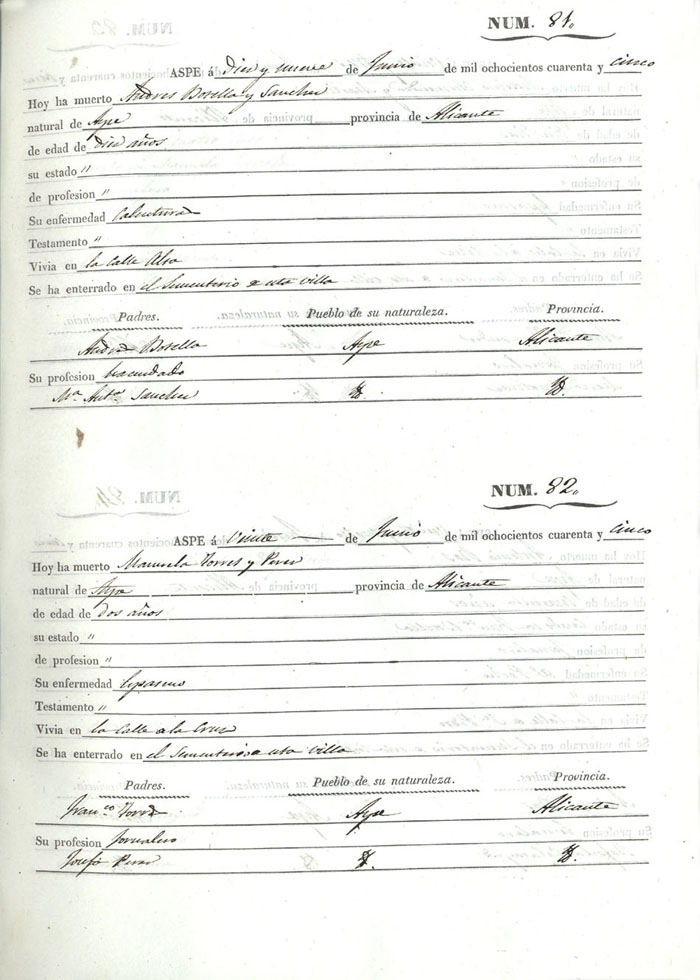 NUM. 81.
ASPE á Diez y nueve de Junio de mil ochocientos cuarenta y cinco
Hoy ha muerto Andres Botella y Sanchez
natural de Aspe provincia de Alicante
de edad de diez años
su estado "
de profesion "
Su enfermedad Calentura
Testamento "
Vivia en la Calle Alta
Se ha enterrado en el Sementerio de esta Villa
Padres. Pueblo de su naturaleza. Provincia.
Andres Botella Aspe Alicante
Su profesion hacendado
Mª Antª Sanchez Yd. Yd.
NUM. 82.
ASPE á Veinte de Junio de mil ochocientos cuarenta y cinco
Hoy ha muerto Manuela Torres y Perez
natural de Aspe provincia de Alicante
de edad de dos años
su estado "
de profesion "
Su enfermedad Espasmo
Testamento "
Vivia en la Calle de la Cruz
Se ha enterrado en el Sementerio de esta Villa
Padres. Pueblo de su naturaleza. Provincia.
Franco Torres Aspe Alicante
Su profesion Jornalero
Josefa Perez Yd. Yd.